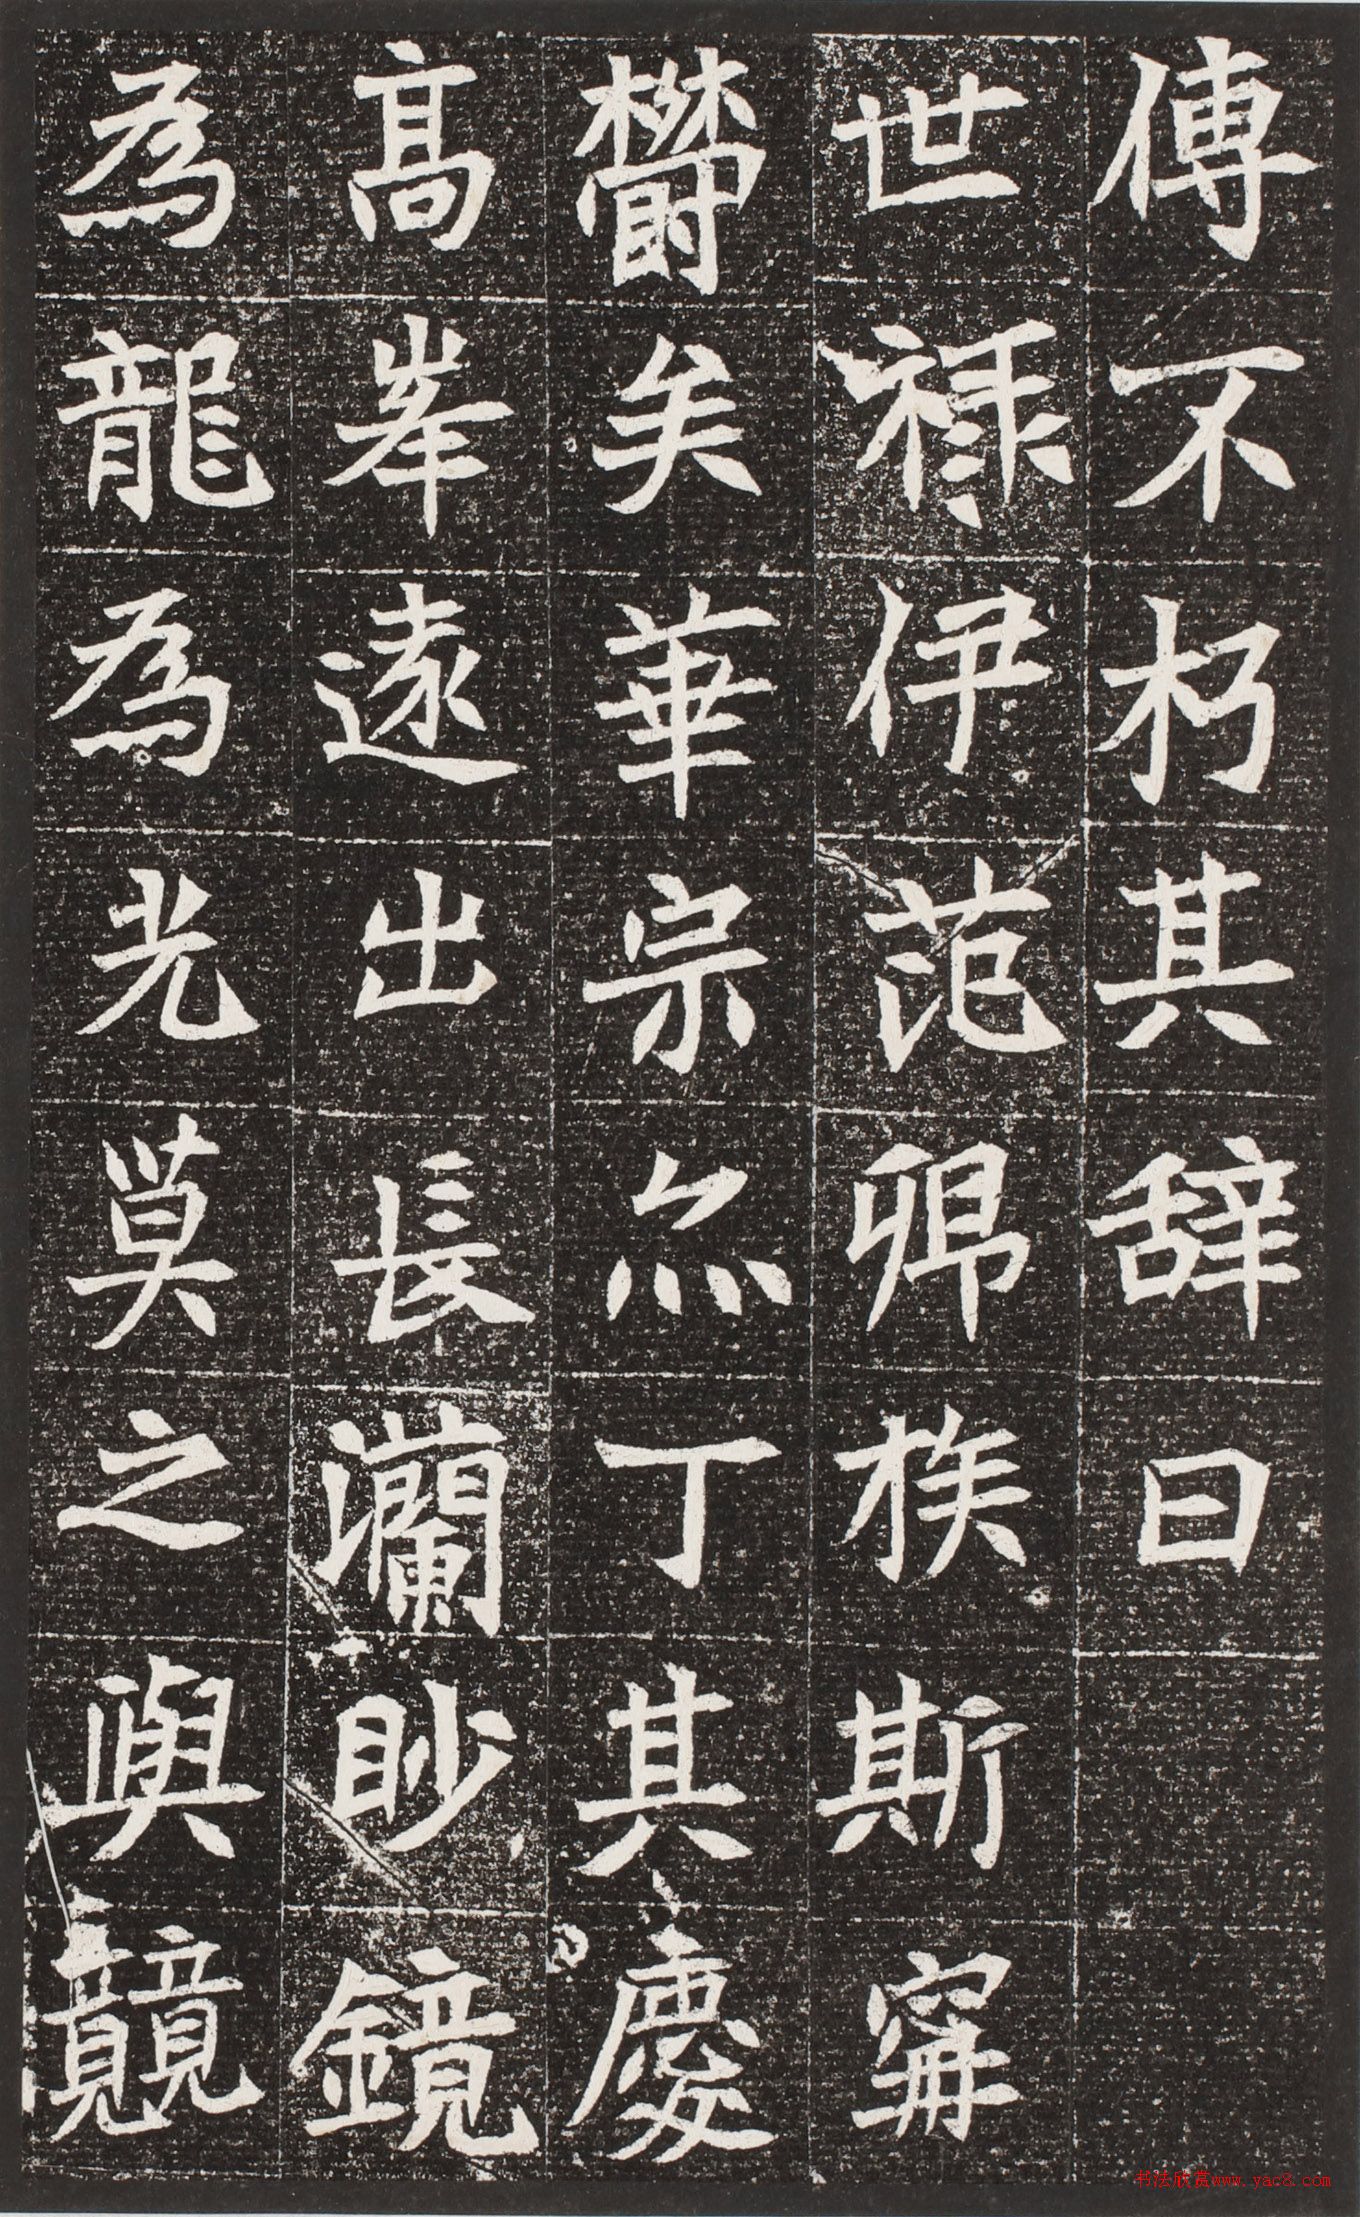 傳不朽其辭曰
世祿伊范卯族斯甯
鬱矣華宗亦丁其慶
高峯遠出長瀾眇鏡
為龍為光莫之與競
书法欣赏www.yac8.com